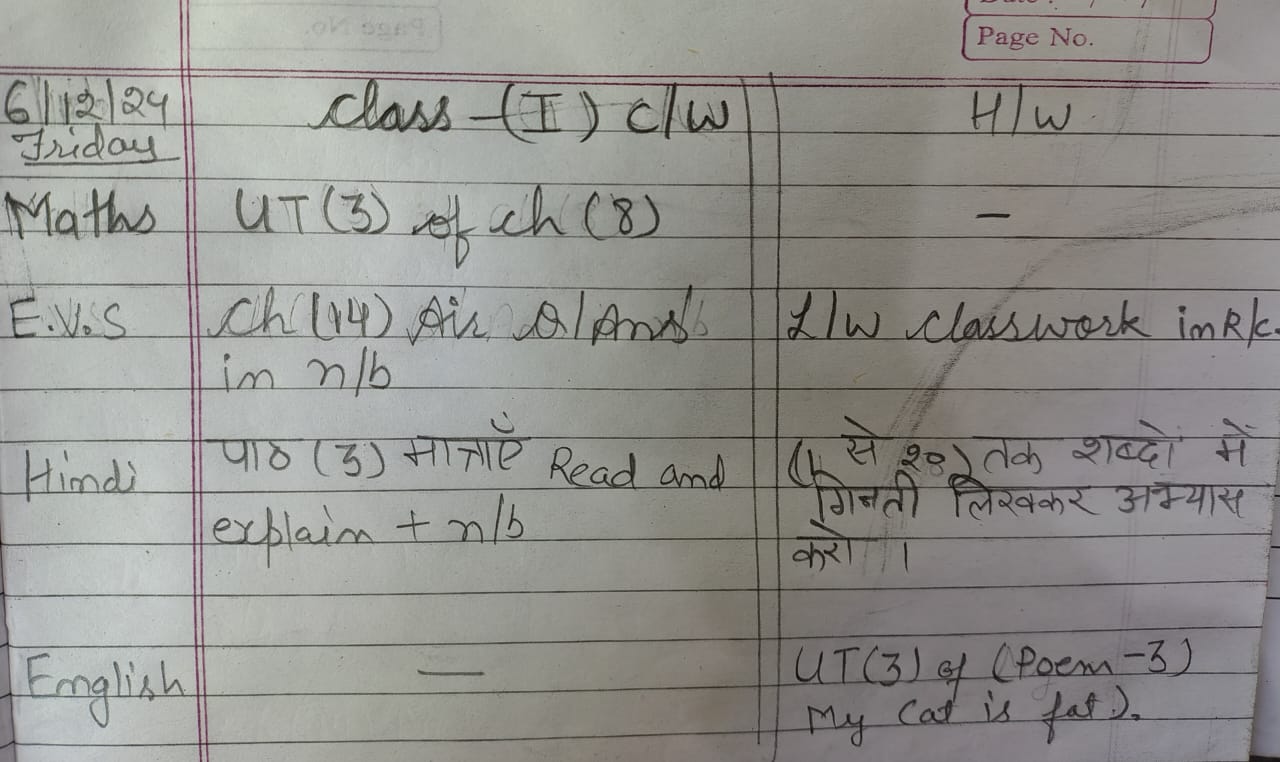 Page No.
6/12/24 Class-(I) C/W H/W
Friday
Maths UT(3) of ch (8) —
E.V.S Ch (14) Air Q/Ans L/W classwork in R/c
in n/b
Hindi पाठ (3) मात्राएँ Read and
explain + n/b
से २०) तक शब्दों में
गिनती लिखकर अभ्यास
करो ।
English — UT(3) of (Poem-3)
My Cat is fat).